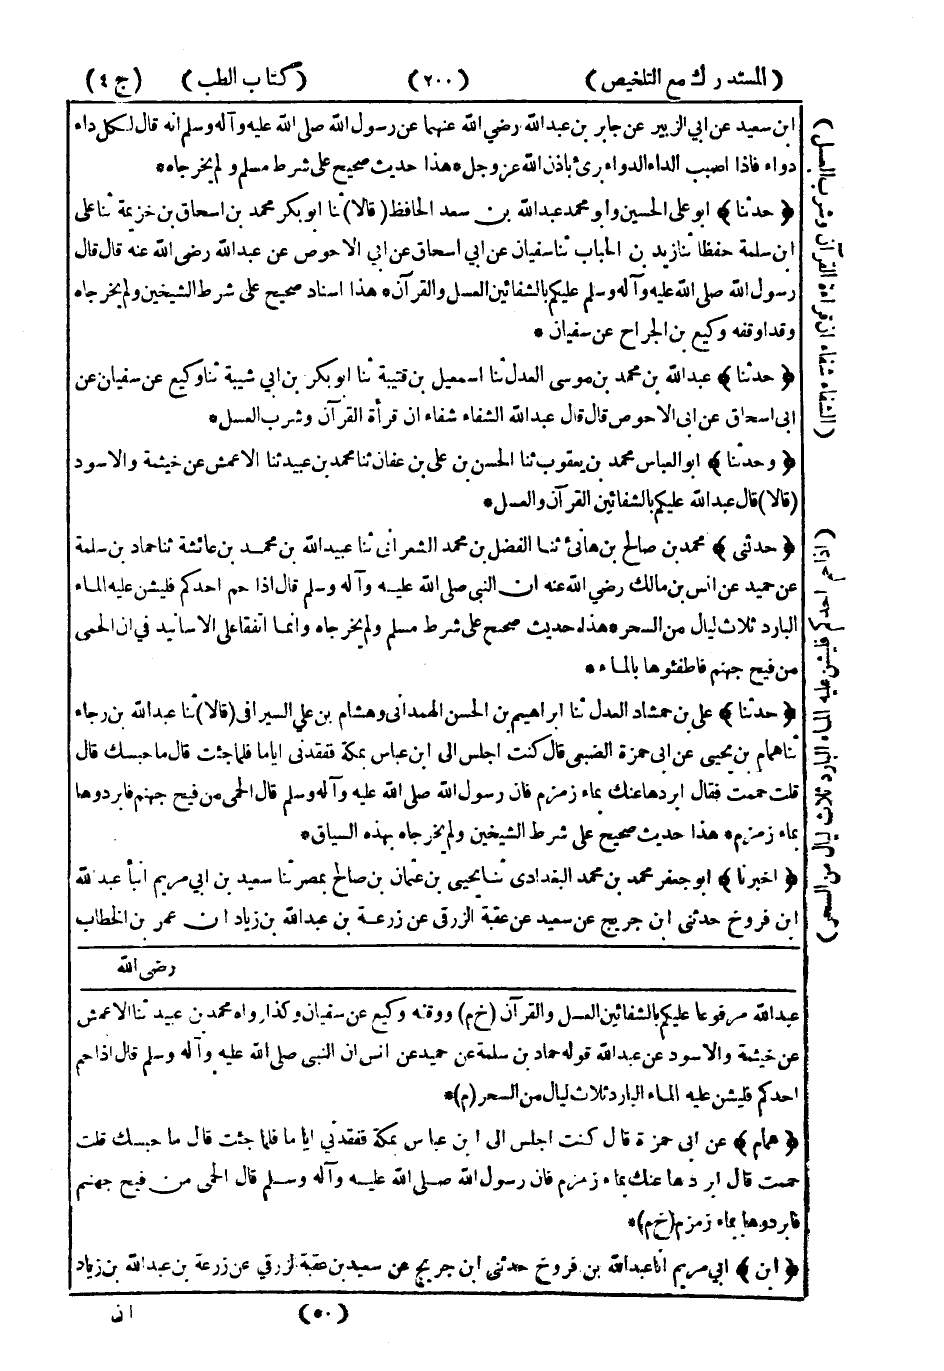 (المستدرك مع التلخيص) (٢٠٠) (كتاب الطب) (ج ٤)
ابن سعيد عن ابي الزبير عن جابر بن عبدالله رضي الله عنهما عن رسول الله صلى الله عليه وآله وسلم انه قال لكل داء
دواء فاذا اصيب الداء الدواء برئ باذن الله عز وجل * هذا حديث صحيح على شرط مسلم ولم يخرجاه *
﴿ حدثنا ﴾ ابو على الحسين وابو محمد عبدالله بن سعد الحافظ (قالا) ثنا ابو بكر محمد بن اسحاق بن خزيمة ثنا على
ابن سلمة حفظا ثنا زيد بن الحباب ثنا سفيان عن ابي اسحاق عن ابي الاحوص عن عبدالله رضى الله عنه قال قال
رسول الله صلى الله عليه وآله وسلم عليكم بالشفائين العسل والقرآن * هذا اسناد صحيح على شرط الشيخين ولم يخرجاه
وقد اوقفه وكيع بن الجراح عن سفيان *
﴿ حدثنا ﴾ عبدالله بن محمد بن موسى العدل ثنا اسمعيل بن قتيبة ثنا ابو بكر بن ابي شيبة ثنا وكيع عن سفيان عن
ابى اسحاق عن ابى الاحوص قال قال عبدالله الشفاء شفاء ان قرأة القرآن وشرب العسل *
﴿ وحدثنا ﴾ ابو العباس محمد بن يعقوب ثنا الحسن بن على بن عفان ثنا محمد بن عبيد ثنا الاعمش عن خيثمة والاسود
(قالا) قال عبدالله عليكم بالشفائين القرآن والعسل *
﴿ حدثنى ﴾ محمد بن صالح بن هانئ ثنا الفضل بن محمد الشعرانى ثنا عبيد الله بن محمد بن عائشة ثنا حماد بن سلمة
عن حميد عن انس بن مالك رضي الله عنه ان النبى صلى الله عليه وآله وسلم قال اذا حم احدكم فليشن عليه الماء
البارد ثلاث ليال من السحر * هذا حديث صحيح على شرط مسلم ولم يخرجاه وانما اتفقا على الاسانيد في ان الحمى
من فيح جهنم فاطفئوها بالماء *
﴿ حدثنا ﴾ على بن حمشاد العدل ثنا ابراهيم بن الحسن الهمدانى وهشام بن على السيرافى (قالا) ثنا عبدالله بن رجاء
ثنا همام بن يحيى عن ابى حمزة الضبعى قال كنت اجلس الى ابن عباس بمكة ففقدنى اياما فلما جئت قال ما حبسك قال
قلت حممت فقال ابردها عنك بماء زمزم فان رسول الله صلى الله عليه وآله وسلم قال الحمى من فيح جهنم فابردوها
بماء زمزم * هذا حديث صحيح على شرط الشيخين ولم يخرجاه بهذه السياق *
﴿ اخبرنا ﴾ ابو جعفر محمد بن محمد البغدادى ثنا يحيى بن عثمان بن صالح بمصر ثنا سعيد بن ابى مريم انبأ عبد الله
ابن فروخ حدثنى ابن جريج عن سعيد عن عقبة الزرقى عن زرعة بن عبدالله بن زياد ان عمر بن الخطاب
رضى الله
(الشفاء شفاء ان قراءة القرآن وشرب العسل)
(اذا حم احدكم فليشن عليه الماء البارد ثلاث ليال من السحر)
عبدالله مرفوعا عليكم بالشفائين العسل والقرآن (خ م) ووقفه وكيع عن سفيان وكذا رواه محمد بن عبيد ثنا الاعمش
عن خيثمة والاسود عن عبدالله قوله حماد بن سلمة عن حميد عن انس ان النبى صلى الله عليه وآله وسلم قال اذا حم
احدكم فليشن عليه الماء البارد ثلاث ليال من السحر (م) *
﴿ همام ﴾ عن ابى حمزة قال كنت اجلس الى ابن عباس بمكة ففقدنى اياما فلما جئت قال ما حبسك قلت
حممت قال ابردها عنك بماء زمزم فان رسول الله صلى الله عليه وآله وسلم قال الحمى من فيح جهنم
فابردوها بماء زمزم (خ م) *
﴿ ابن ﴾ ابي مريم انا عبدالله بن فروخ حدثنى ابن جريج عن سعيد بن عقبة الزرقي عن زرعة بن عبدالله بن زياد
(٥٠) ان